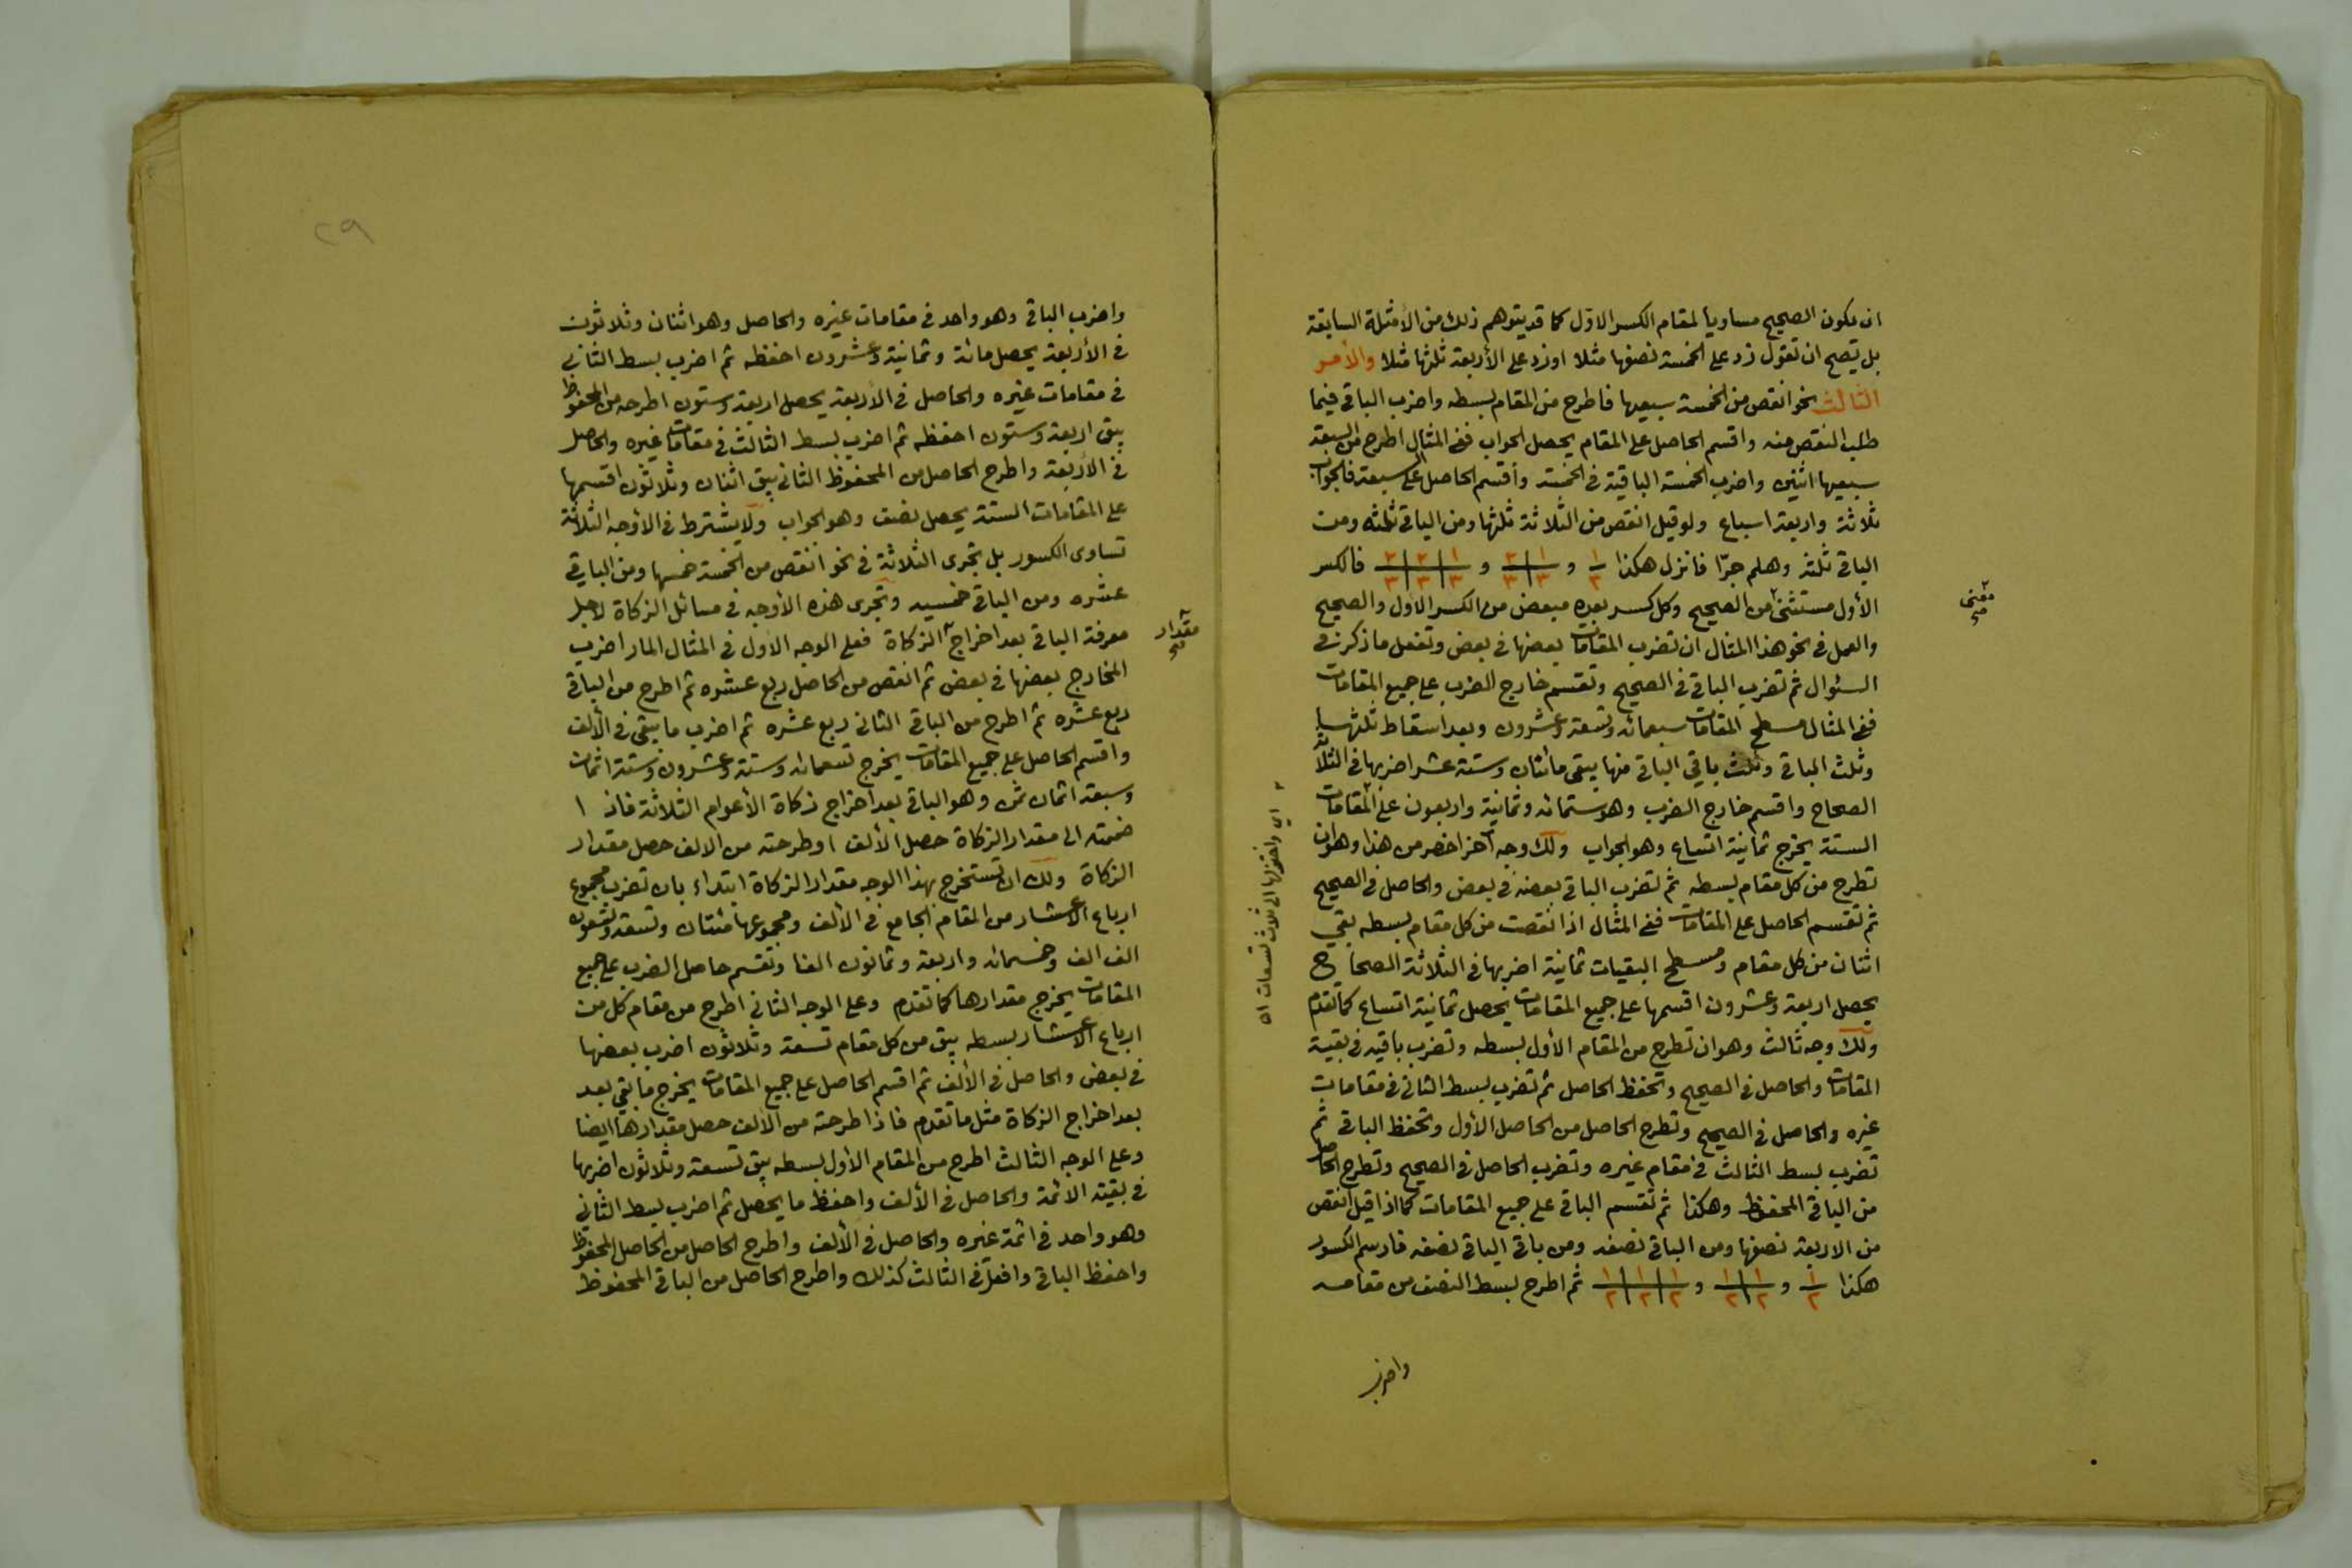 ان يكون الصحيح مساويا لمقام الكسر الاول كما قد يتوهم ذلك من الأمثلة السابقة
بل يصح ان تقول زد على الخمسة نصفها مثلا او زد على الأربعة ثلثها مثلا والأمر
الثالث نحو انقص من الخمسة سبعيها فاطرح من المقام بسطه واضرب الباقي فيما
طلب النقص منه واقسم الحاصل على المقام يحصل الجواب ففي المثال اطرح من السبعة
سبعيها اثنين واضرب الخمسة الباقية في الخمسة وأقسم الحاصل على سبعة فالجواب
ثلاثة واربعة اسباع ولو قيل انقص من الثلاثة ثلثها ومن الباقي ثلثه ومن
الباقي ثلثه وهلم جرّا فانزل هكذا ١/٣ و ١/٣ ٢/٣ و ١/٣ ٢/٣ ٢/٣ فالكسر
الأول مستثنى من الصحيح وكل كسر بعده مبعض من الكسر الأول والصحيح
والعمل في نحو هذا المثال ان تضرب المقامات بعضها في بعض وتفعل ما ذكر في
السئوال ثم تضرب الباقي في الصحيح وتقسم خارج الضرب على جميع المقامات
ففي المثال مسطح المقامات سبعمائه وتسعة وعشرون وبعد اسقاط ثلثها
وثلث الباقي وثلث باقي الباقي منها يبقى مائتان وستة عشر اضربها في الثلاثة
الصحاح واقسم خارج الضرب وهو ستمائه وثمانية واربعون على المقامات
الستة يخرج ثمانية اتساع وهو الجواب ولك وجه آخر اخصر من هذا وهو ان
تطرح من كل مقام بسطه ثم تضرب الباقي بعضه في بعض والحاصل في الصحيح
ثم تقسم الحاصل على المقامات ففي المثال اذا نقصت من كل مقام بسطه بقي
اثنان من كل مقام ومسطح البقيات ثمانية اضربها في الثلاثة الصحاح
يحصل اربعة وعشرون اقسمها على جميع المقامات يحصل ثمانية اتساع كما تقدم
ولك وجه ثالث وهو ان تطرح من المقام الأول بسطه وتضرب باقيه في بقية
المقامات والحاصل في الصحيح وتحفظ الحاصل ثم تضرب بسط الثاني في مقامات
غيره والحاصل في الصحيح وتطرح الحاصل من الحاصل الأول وتحفظ الباقي ثم
تضرب بسط الثالث في مقام غيره وتضرب الحاصل في الصحيح وتطرح الحاصل
من الباقي المحفوظ وهكذا ثم تقسم الباقي على جميع المقامات كما اذا قيل انقص
من الاربعة نصفها ومن الباقي نصفه ومن باقي الباقي نصفه فارسم الكسور
هكذا ١/٢ و ١/٢ ١/٢ و ١/٢ ١/٢ ١/٢ ثم اطرح بسط النصف من مقامه
واضرب
٢٩
واضرب الباقي وهو واحد في مقامات غيره والحاصل وهو اثنان وثلاثون
في الأربعة يحصل مائة وثمانية وعشرون احفظه ثم اضرب بسط الثاني
في مقامات غيره والحاصل في الأربعة يحصل اربعة وستون اطرحه من المحفوظ
يبق اربعة وستون احفظه ثم اضرب بسط الثالث في مقامات غيره والحاصل
في الأربعة واطرح الحاصل من المحفوظ الثاني يبق اثنان وثلاثون اقسمها
على المقامات الستة يحصل نصف وهو الجواب ولا يشترط في الأوجه الثلاثة
تساوى الكسور بل تجرى الثلاثة في نحو انقص من الخمسة خمسها ومن الباقي
عشره ومن الباقي خمسيه وتجرى هذه الأوجه في مسائل الزكاة لأجل
معرفة الباقي بعد اخراج الزكاة فعلى الوجه الأول في المثال المار اضرب
مقدار
المخارج بعضها في بعض ثم انقص من الحاصل ربع عشره ثم اطرح من الباقي
ربع عشره ثم اطرح من الباقي الثاني ربع عشره ثم اضرب ما يبقى في الألف
واقسم الحاصل على جميع المقامات يخرج تسعمائه وستة وعشرون وستة اثمان
وسبعة اثمان ثمن وهو الباقي بعد اخراج زكاة الأعوام الثلاثة فاذا
ضممته الى مقدار الزكاة حصل الألف او طرحته من الالف حصل مقدار
الزكاة ولك ان تستخرج بهذا الوجه مقدار الزكاة ابتداء بان تضرب مجموع
ارباع الاعشار من المقام الجامع في الألف ومجموعها مئتان وتسعة وتسعون
الف الف وخمسمائه واربعة وثمانون الفا وتقسم حاصل الضرب على جميع
المقامات يخرج مقدارها كما تقدم وعلى الوجه الثاني اطرح من مقام كل من
ارباع الاعشار بسطه يبق من كل مقام تسعة وثلاثون اضرب بعضها
في بعض والحاصل في الألف ثم اقسم الحاصل على جميع المقامات يخرج ما بقي بعد
بعد اخراج الزكاة مثل ما تقدم فاذا طرحته من الالف حصل مقدارها ايضا
وعلى الوجه الثالث اطرح من المقام الأول بسطه يبق تسعة وثلاثون اضربها
في بقية الائمة والحاصل في الألف واحفظ ما يحصل ثم اضرب بسط الثاني
وهو واحد في ائمة غيره والحاصل في الألف واطرح الحاصل من الحاصل المحفوظ
واحفظ الباقي وافعل في الثالث كذلك واطرح الحاصل من الباقي المحفوظ